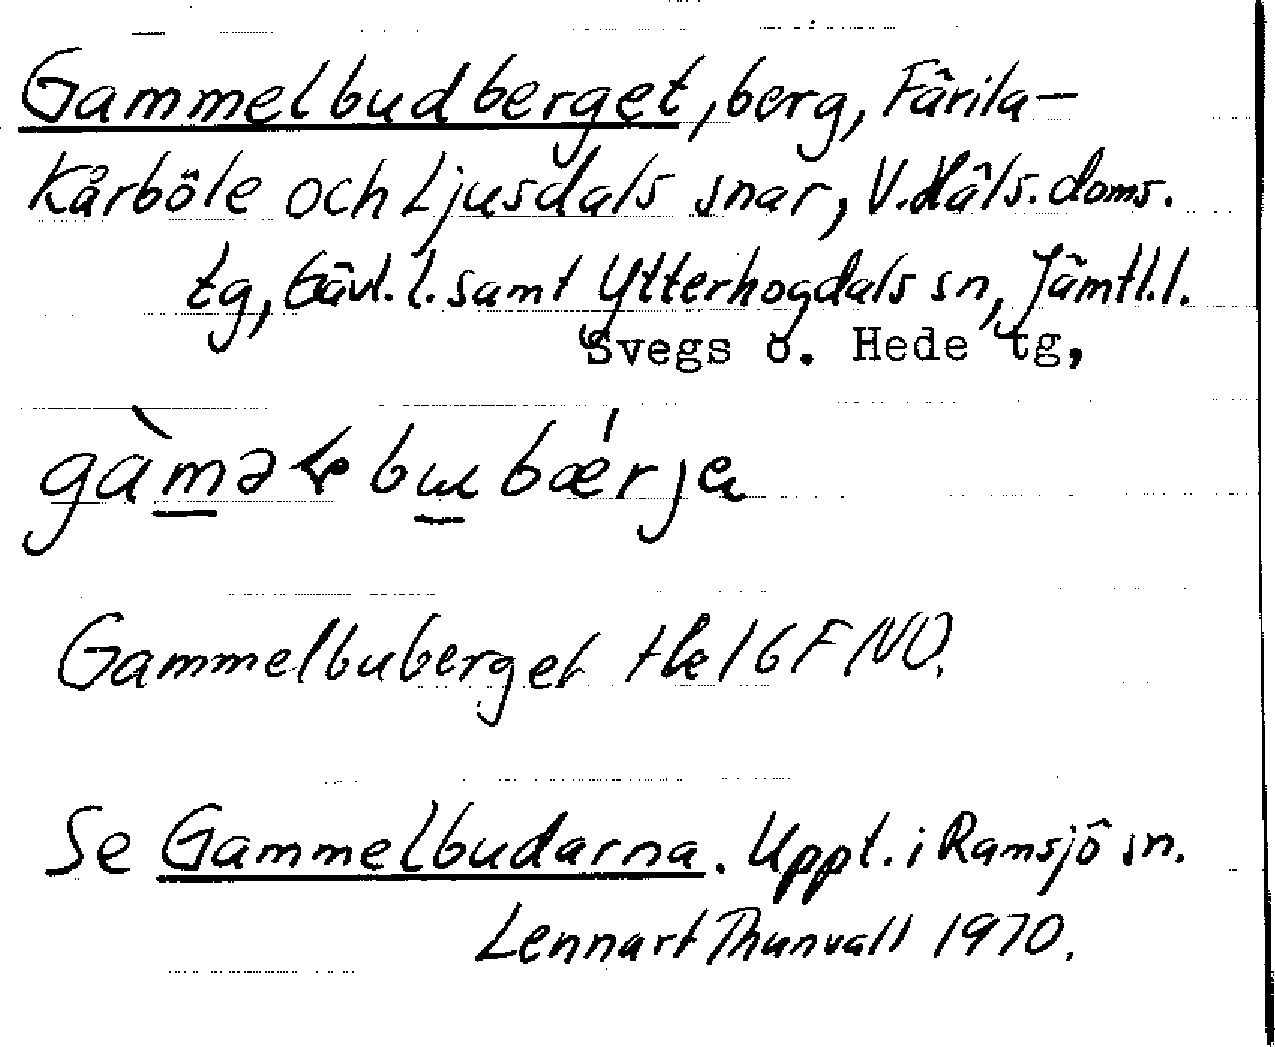 Gammelbudberget, berg, Färila-
Kårböle och Ljusdals snar, V. Häls. doms.
tg, Gävl. l. samt Ytterhogdals sn, Jämtl. l.
Svegs o. Hede tg,
Gammelbuberget He 16 F NO.
Se Gammelbudarna. Uppt. i Ramsjö sn.
Lennart Thunvall 1970.